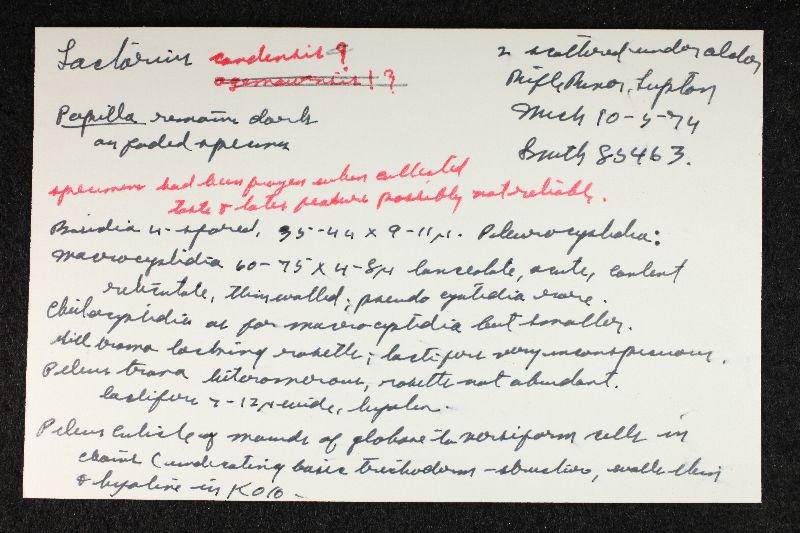 Lactarius candensis ?
ogemawensis ! ?
2 scattered under alder
Rifle River, Lupton
Mich 10-5-74
Smith 85463.
Papilla remain dark
on faded specimens
specimens had been frozen when collected
taste & latex feature possibly not reliable.
Basidia 4-spored, 35-44 x 9-11µ. Pleurocystidia:
Macrocystidia 60-75 x 4-8µ lanceolate, acute, content
reticulate, thin walled; pseudocystidia rare.
Cheilocystidia as for macrocystidia but smaller.
Gill trama lacking rosetts; lactifers very inconspicuous.
Pileus trama heteromerous, rosetts not abundant.
lactifers 7-12µ wide, hyaline.
Pileus cuticle of mounds of globose to versiform cells in
chains (indicating basic trichoderm-structure, walls thin
& hyaline in KOH-